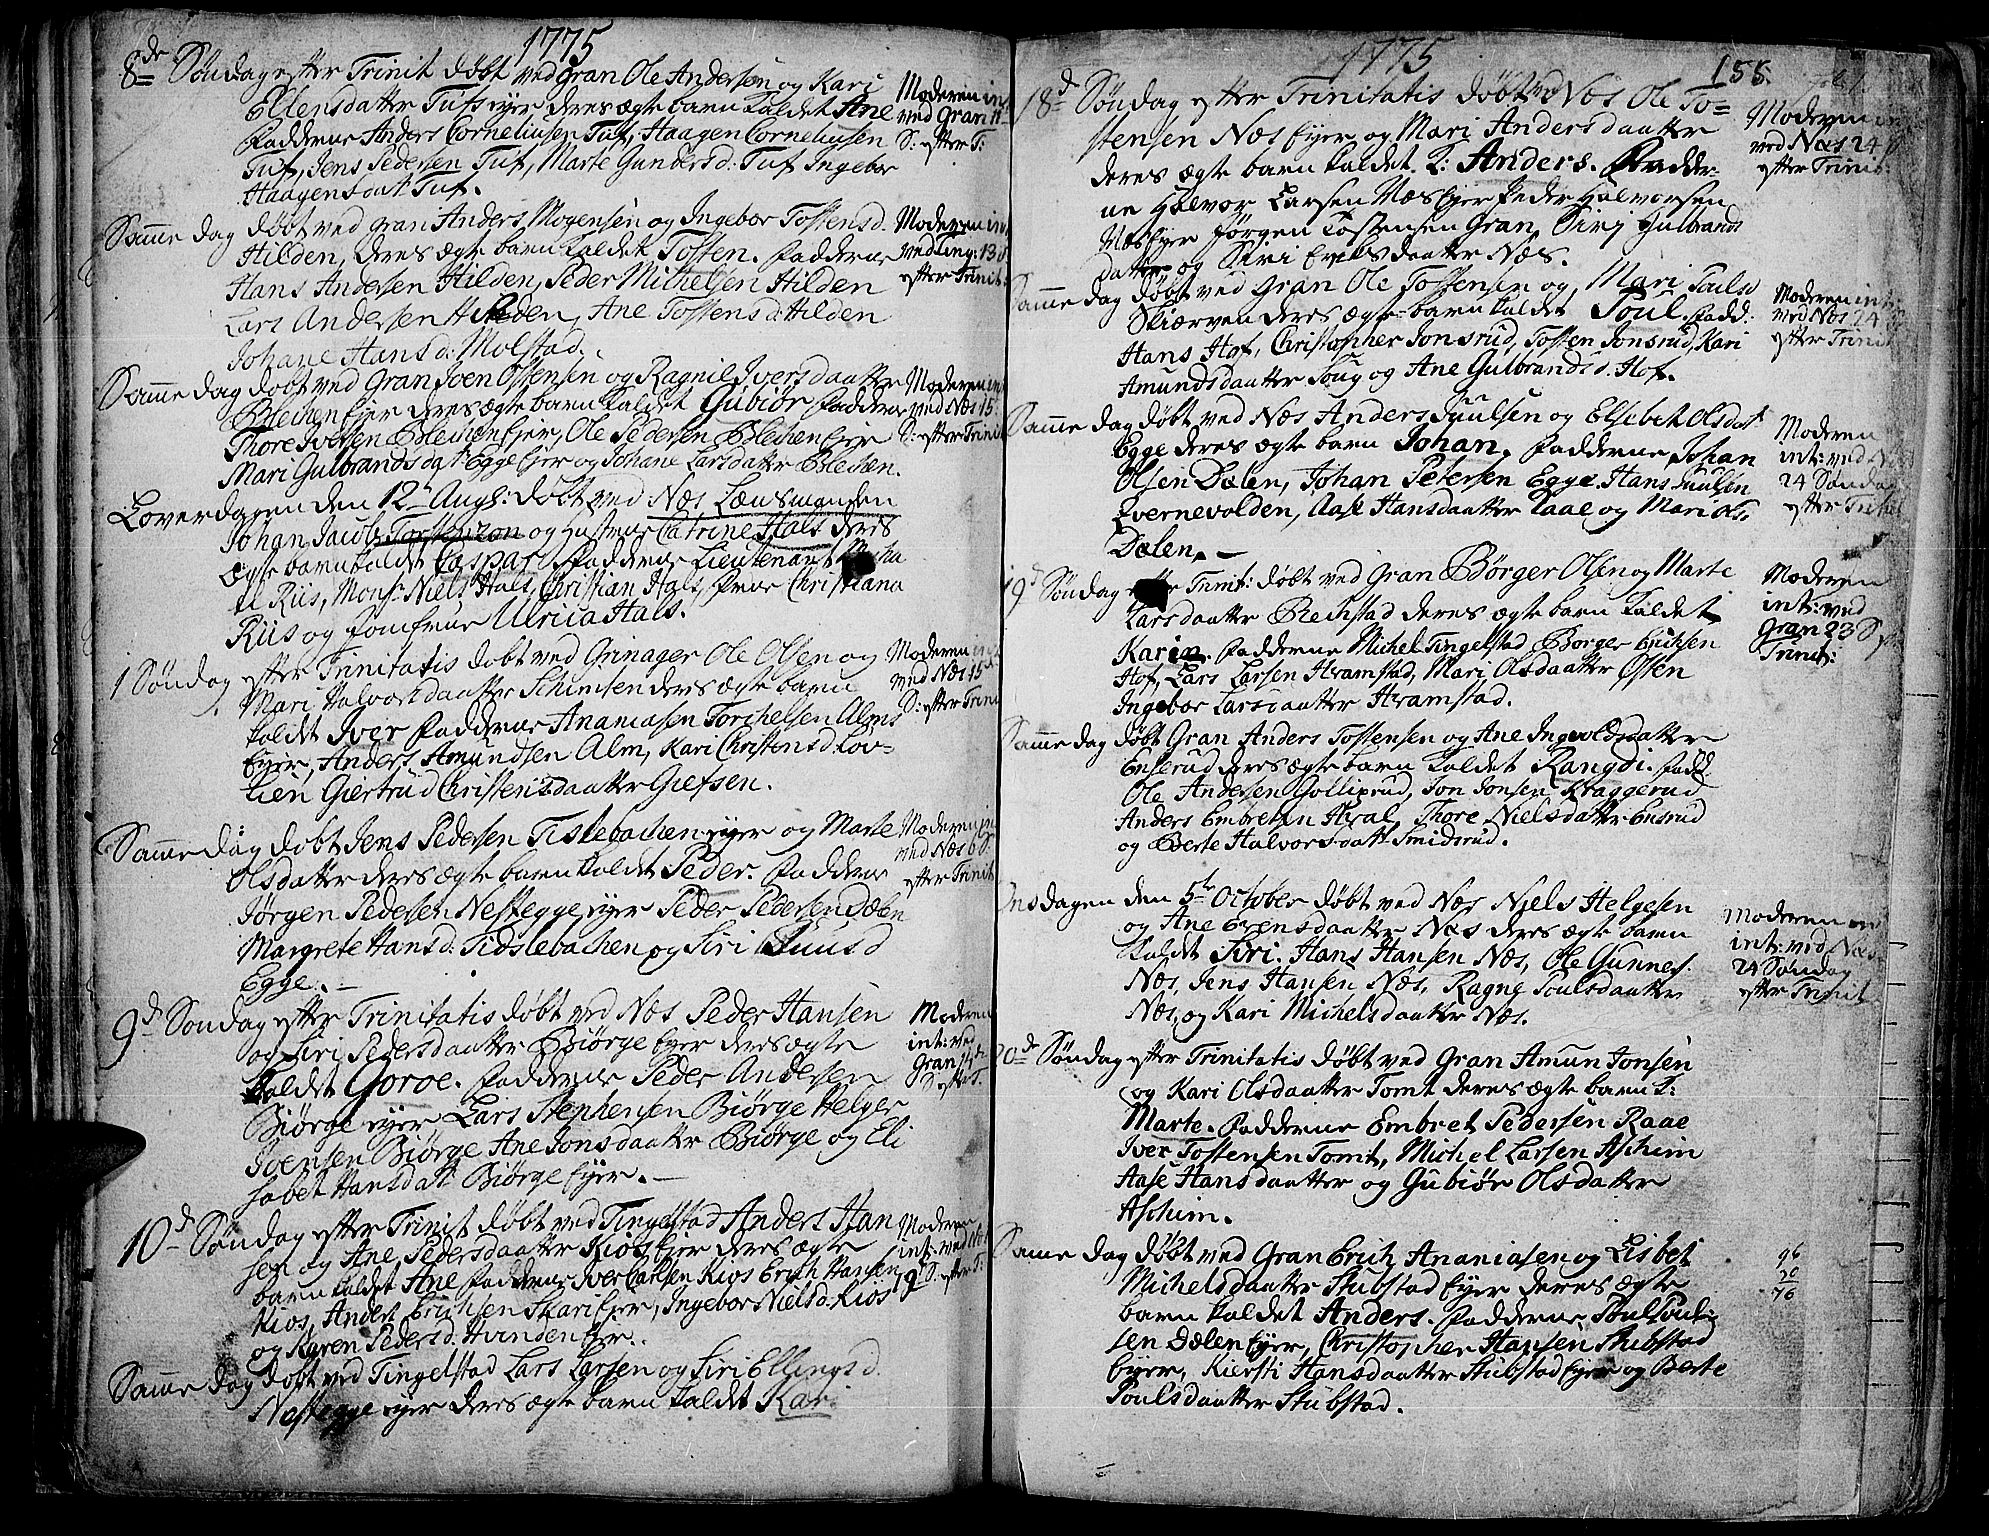 1775
8de Søndag efter Trinit døbt ved Gran Ole Andersen og Kari
Ellensdatter Tufs ejer deres ægte barn kaldet Ane
Fadderne Anders Corneliusen Tuf, Haagen Corneliusen
Tuf, Jens Pedersen Tuf, Marte Gunders d: Tuf Ingebor
Haagensdat Tuf.
Moderen in
ved Gran 11
S: efter T:
Samme dag døbt ved Gran Anders Mogensen og Ingebor Tostensd.
Hilden, deres ægte barn kaldet Tosten. Fadderne
Hans Andersen Hilden, Peder Michelsen Hilden
Lars Andersen Hilden, Ane Tostens d: Hilden
Johane Hans d: Molstad.
Moderen in
ved Ting: 13
efter Trinit
Samme dag døbt ved Gran Joen Ostensen og Ragnil Iversdaatter
Blechen Ejer deres ægte barn kaldet Gubiør Fadderne
Thore Iversen Blechen Ejer, Ole Pedersen Blechen Ejer
Mari Gulbrandsdat Egge Ejer og Johane Larsdatter Blechen.
Moderen in
ved Næs 15
S: efter Trinit
Løverdagen den 12te Augs: døbt ved Næs Lænsmanden
Johan Jacob Torstenzon og Hustrue Catrine Hals deres
ægte barn kaldet Caspar Fadderne Lieutenant
Riis, Mons: Niels Hals, Christian Hals, frue Christiana
Riis og Jomfrue Ulrica Hals.
1 Søndag efter Trinitatis døbt ved Grinager Ole Olsen og
Mari Halvorsdaatter Schiensen deres ægte barn
kaldet Iver Fadderne Ananiasen Torchelsen Alms
Ejer, Anders Amundsen Alm, Kari Christens d Lov-
lien Giertrud Christensdaatter Giefsen.
Moderen in
ved Næs 15d
S: efter Trinit
Samme dag døbt Jens Pedersen Tislebachen ejer og Marte
Olsdatter deres ægte barn kaldet Peder. Fadderne
Jørgen Pedersen Nestegge ejer Peder Pedersen Dælen
Margrete Hans d: Tidslebachen og Siri Juuls d
Egge.-
Moderen in
ved Næs 6 S:
efter Trinit
9d Søndag efter Trinitatis døbt ved Næs Peder Hansen
og Siri Pedersdaatter Biørge Ejer deres ægte
kaldet Goroe. Fadderne Peder Andersen
Biørge ejer Lars Stephensen Biørge Helger
Joensen Biørge Ane Jonsdaatter Biørge og Eli
sabet Hansdatt Biørge Ejer.-
Moderen
int: ved
Gran 14de
S. efter T.
10d Søndag efter Trinit døbt ved Tingelstad Anders Han
sen og Ane Pedersdaatter Kios Ejer deres ægte
barn kaldet Ane Fadderne Iver Carlsen Kios Erich Hansen
Kios, Anders Erichsen Skari Ejer, Ingebor Niels d: Kios
og Karen Peders d. Hvinden Ejer.
Moderen
int: ved Næs
19d S: efter T:
Samme dag døbt ved Tingelstad Lars Larsen og Siri Ellings d.
Nestegge ejer deres ægte barn kaldet Kari
1775
155.
18d Søndag efter Trinitatis døbt ved Næs Ole To=
stensen Næs Ejer og Mari Andersdaatter
deres ægte barn kaldet K: Anders. Fadder-
ne Halvor Larsen Næs Ejer Peder Halvorsen
Næs Ejer Jørgen Tostensen Gran, Sirj Gulbrands
datter og Siri Erichsdaatter Næs.
Moderen in
ved Næs 24
efter Trinit:
Samme dag døbt ved Gran Ole Tostensen og Mari Poulsd
Skiærven deres ægte barn kaldet Poul. Fadd:
Hans Hof, Christopher Jonsrud, Tosten Jonsrud, Kari
Amundsdaatter Soug og Ane Gulbrands d. Hof.
Moderen int:
ved Næs 24
efter Trinit
Samme dag døbt ved Næs Anders Juulsen og Elsebet Olsdat
Egge deres ægte barn Johan. Fadderne Johan
Olsen Dælen, Johan Petersen Egge. Hans Juulsen
Qvernevolden, Aase Hansdaatter Raae og Mari Ols
Dælen.-
Moderen
int: ved Næs
24 Søndag
efter Trinit
19d Søndag efter Trinit: døbt ved Gran Børger Olsen og Marte
Larsdaatter Blechstad deres ægte barn kaldet
Karin. Fadderne Michel Tingelstad Børger Erichsen
Hof, Lars Larsen Hramstad, Mari Olsdaatter Østen
Ingebor Larsdaatter Hramstad.
Moderen
int: ved
Gran 23 S
Trinit:
Samme dag døbt Gran Anders Tostensen og Ane Ingvoldsdaatter
Enserud deres ægte barn kaldet Rangdi. Fadd
Ole Andersen Golliprud, Jon Jonsen Kraggerud
Anders Embretsen Hval, Thore Nielsdatter Ensrud
og Berte Halvorsdatt Smidsrud.
Onsdagen den 5te October døbt ved Næs Niels Helgesen
og Ane Evensdaatter Næs deres ægte barn
kaldet Siri. Hans Hansen Næs, Ole Gunners.
Næs, Jens Hansen Næs, Ragne Poulsdaatter
Næs, og Kari Michelsdaatter Næs.
Moderen
int: ved Næs
24 Søndag
efter Trinit
20de Søndag efter Trinitatis døbt ved Gran Amun Jonsen
og Kari Olsdaatter Tomt deres ægte barn K:
Marte. Fadderne Embret Pedersen Raae
Iver Tostensen Tomt, Michel Larsen Aschim
Aase Hansdaatter og Gubiør Olsdatter
Aschim.
Samme dag døbt ved Gran Erich Ananiasen og Lisbet
Michelsdaatter Stubstad Ejer deres ægte
barn kaldet Anders. Fadderne Poul Poul-
sen Dælen Ejer, Christopher Hansen Stubstad
Ejer, Kiersti Hansdaatter Stubstad Ejer og Berte
Poulsdaatter Stubstad.
96
20
76